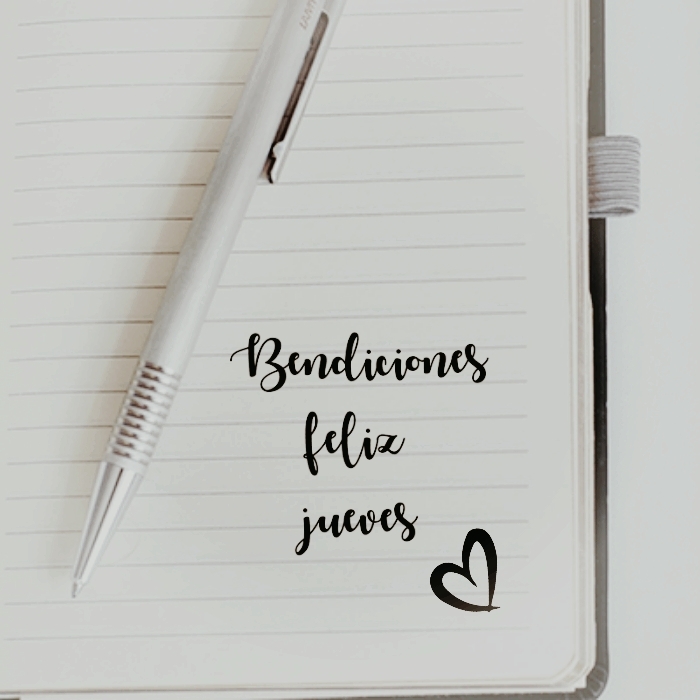 LAMY
Bendiciones
feliz
jueves